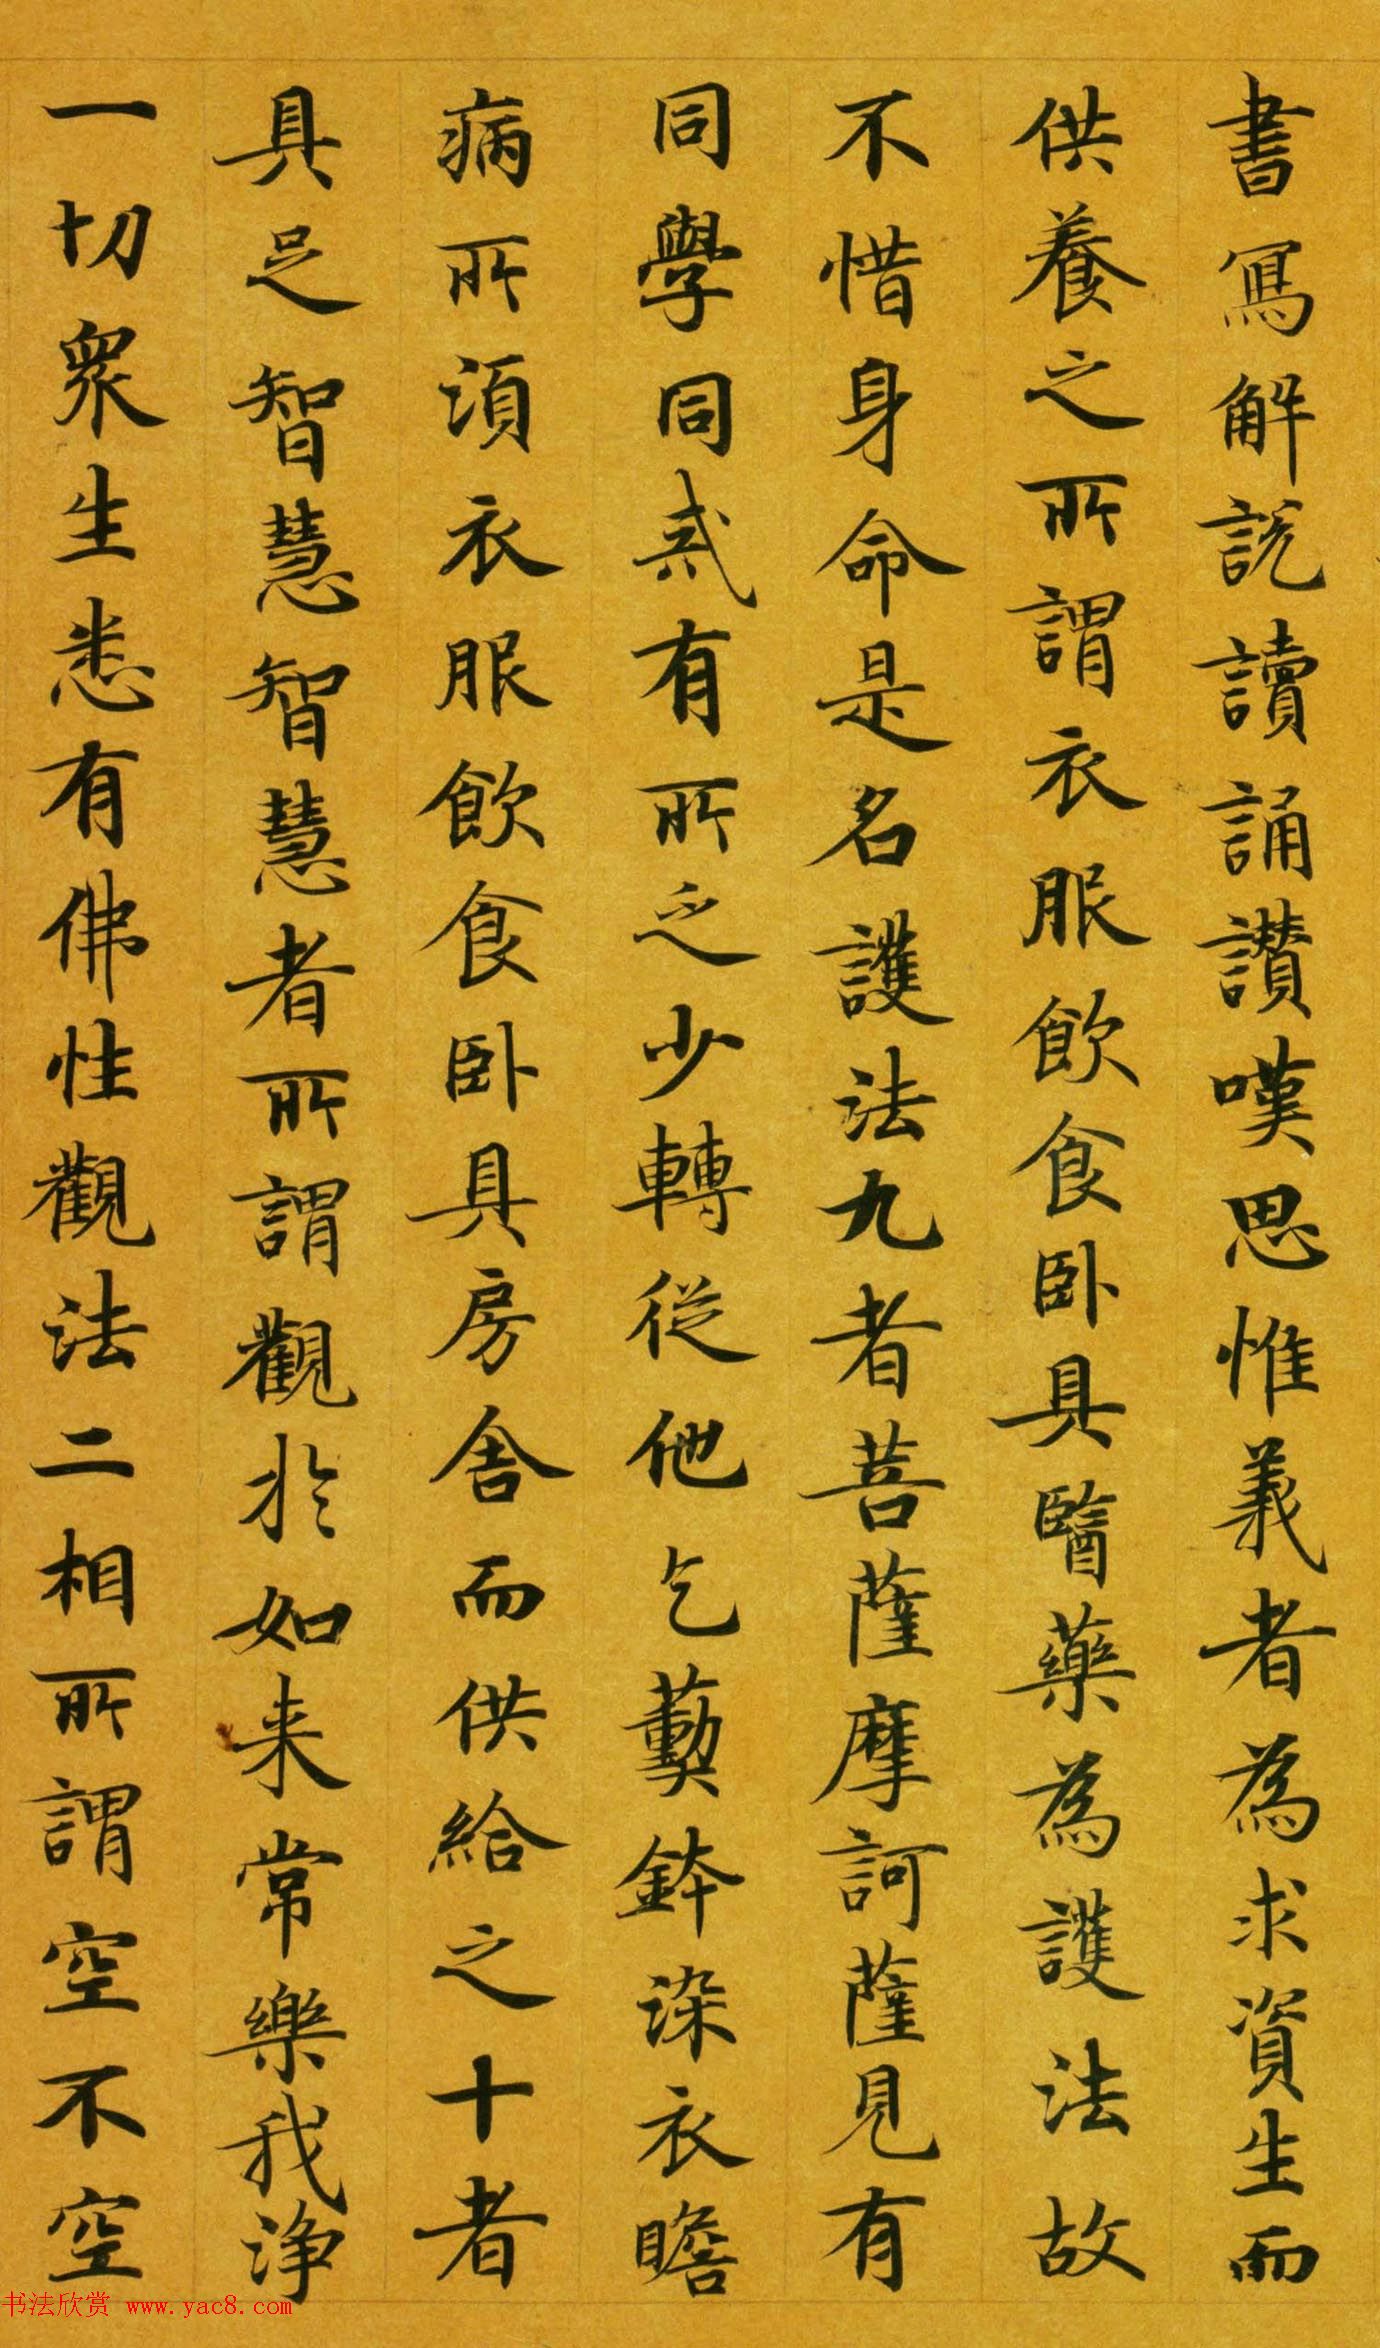 書寫解説讀誦讃嘆思惟義者為求資生而
供養之所謂衣服飲食卧具醫藥為護法故
不惜身命是名護法九者菩薩摩訶薩見有
同學同戒有所乏少轉從他乞薰鉢染衣瞻
病所須衣服飲食卧具房舎而供給之十者
具足智慧智慧者所謂觀於如来常樂我淨
一切衆生悉有佛性觀法二相所謂空不空
书法欣赏 www.yac8.com